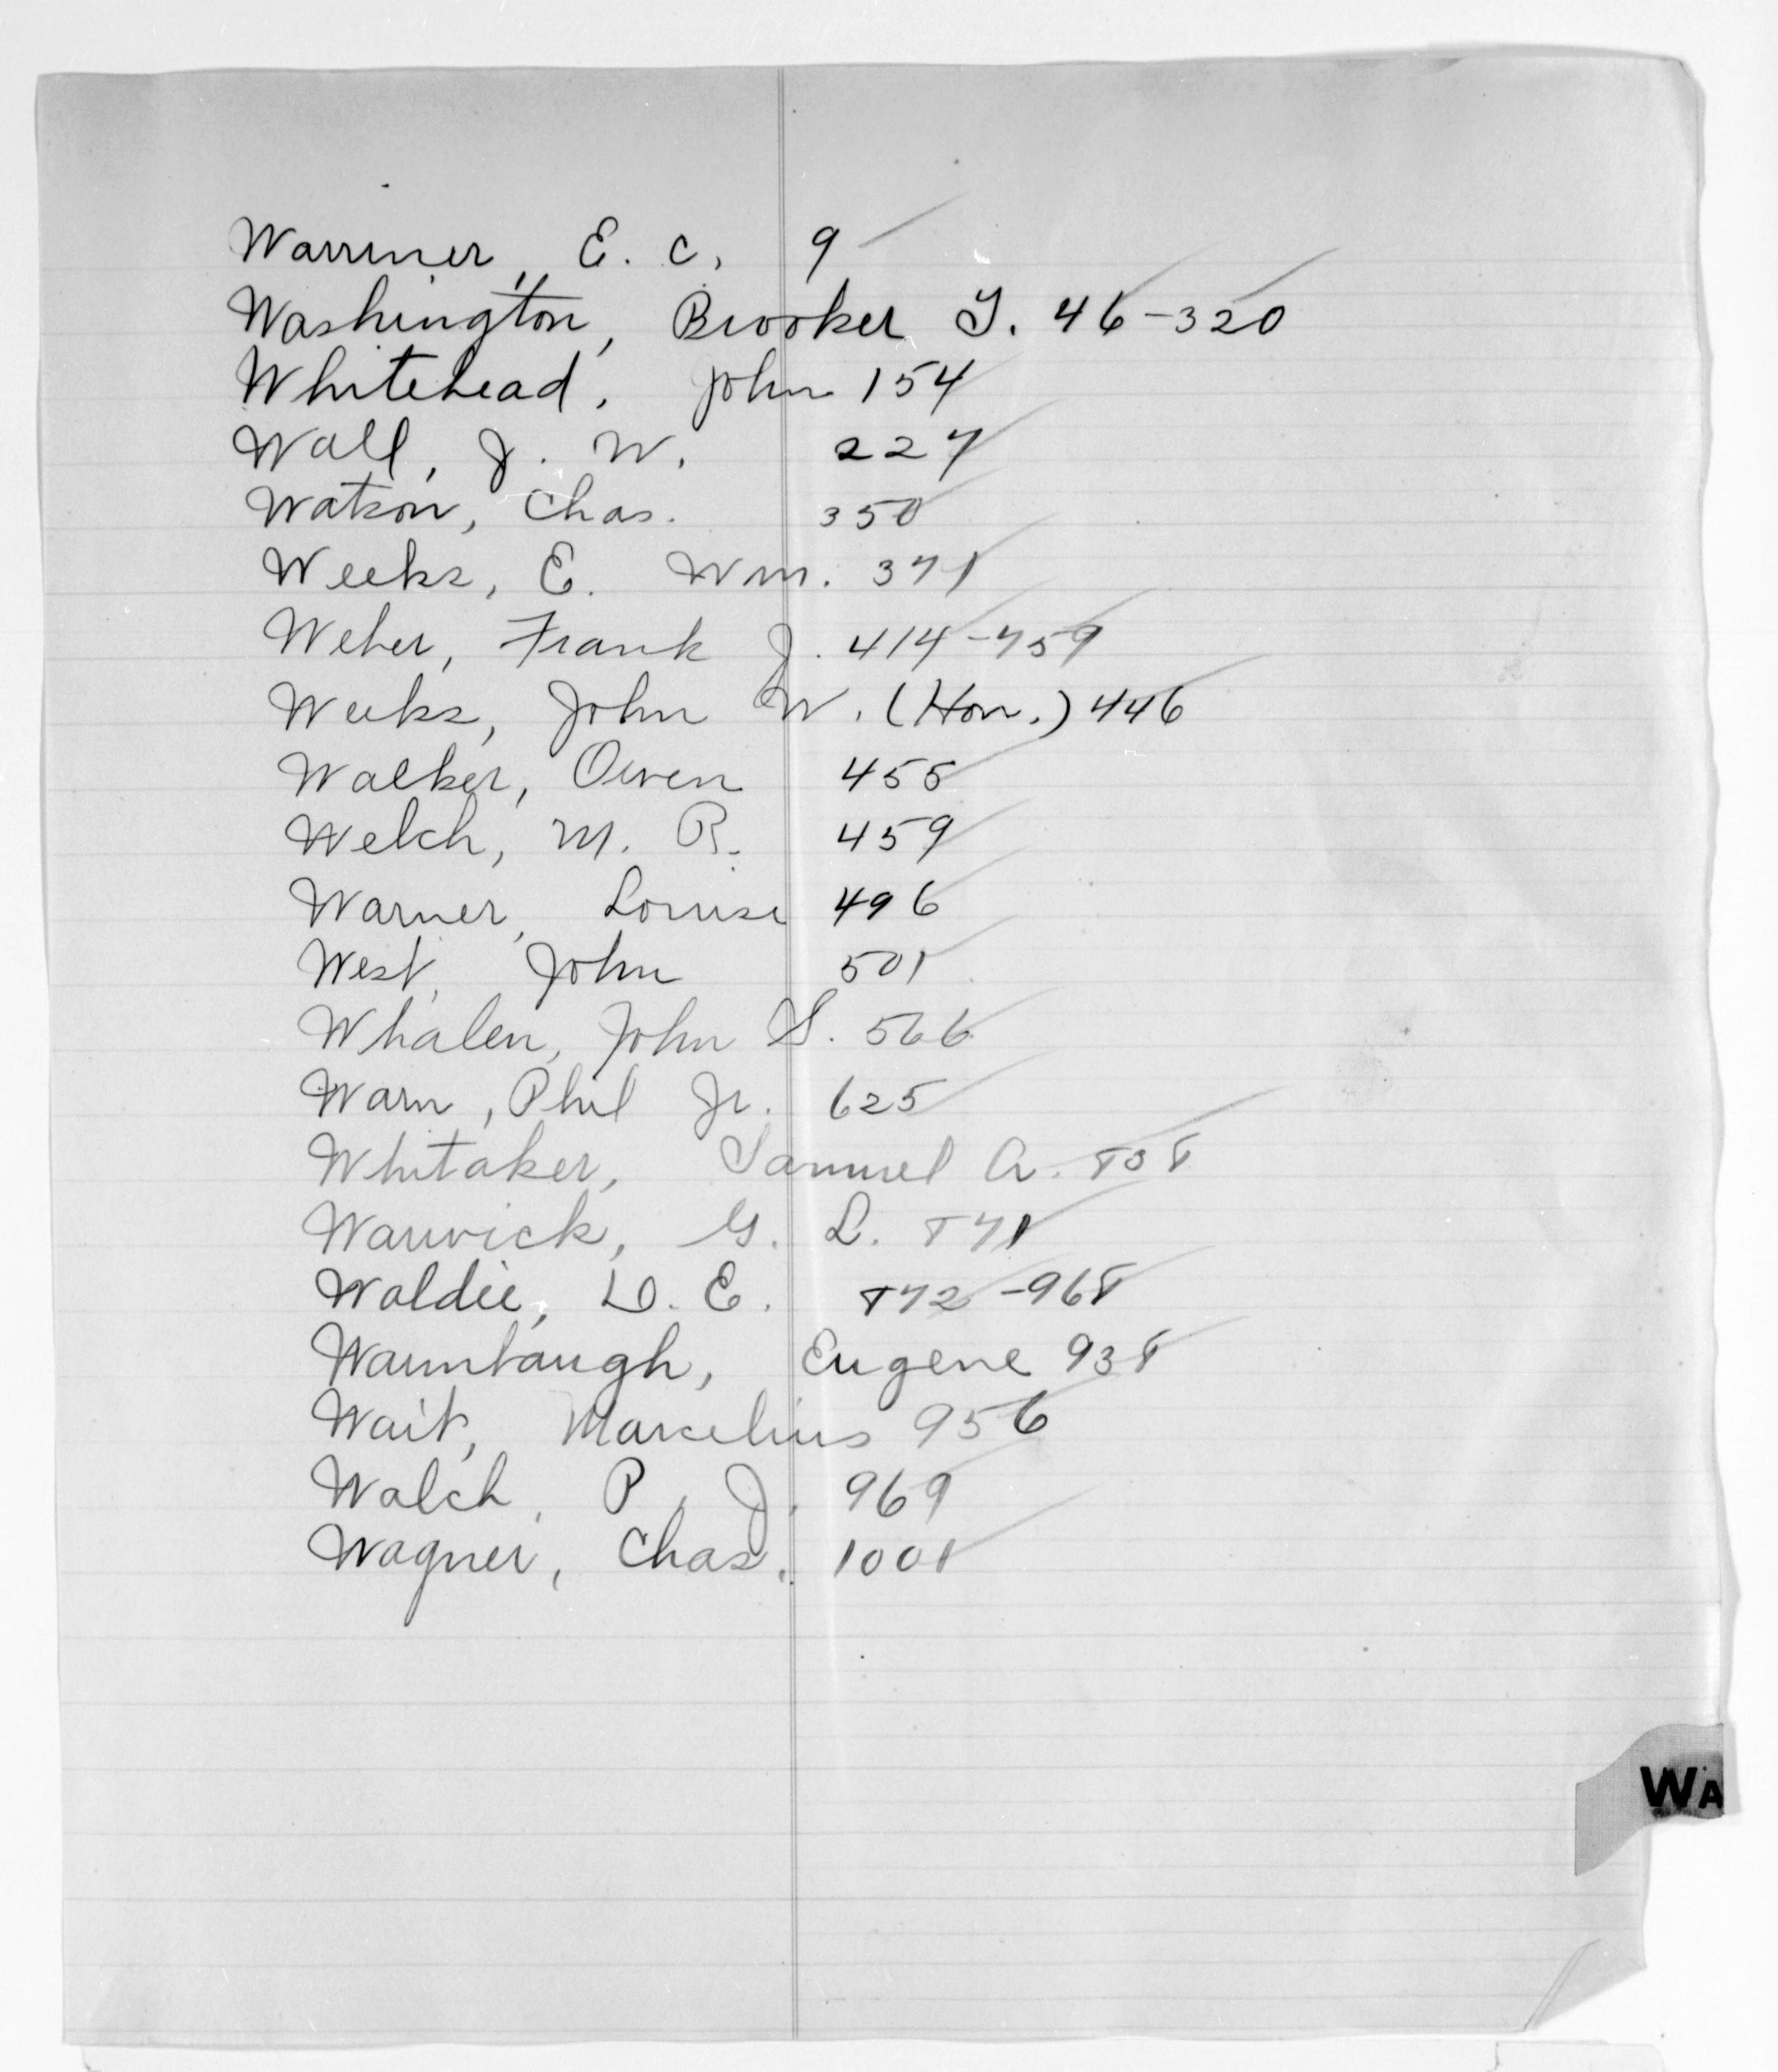 Warriner, E. C. 9
Washington, Brooker T. 46-320
Whitehead, John 154
Wall, J. W. 227
Watson, Chas. 350
Weeks, E. Wm. 371
Weber, Frank J. 414-759
Weeks, John W. (Hon.) 446
Walker, Owen 455
Welch, M. R. 459
Warner, Louise 496
West, John 501
Whalen, John S. 566
Warn, Phil Jr. 625
Whitaker, Samuel A. 838
Warwick, G. L. 871
Waldie, D. E. 872-968
Waumbaugh, Eugene 938
Wait, Marcelius 956
Walch, P. J. 969
Wagner, Chas. 1001
WA